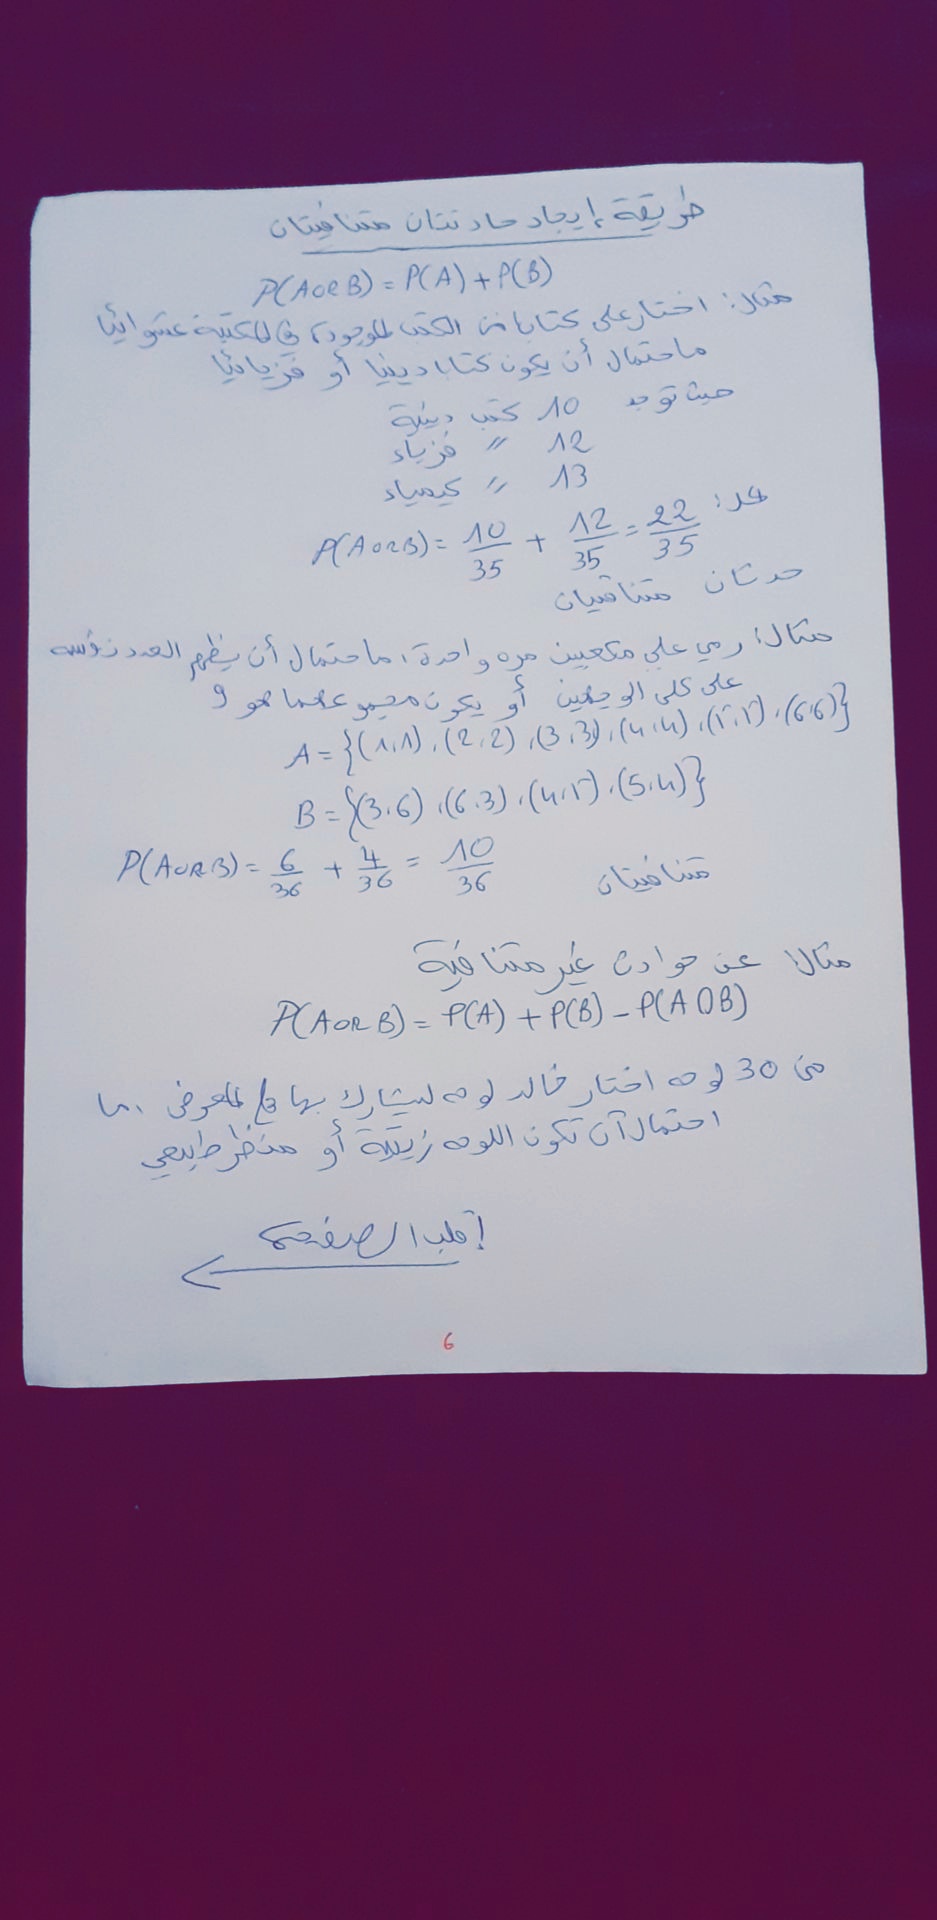 طريقة إيجاد حادثتان متنافيتان
P(A OR B) = P(A) + P(B)
مثال: اختار علي كتابا من الكتب الموجودة في المكتبة عشوائيا
ما احتمال أن يكون كتابا دينيا أو فزيائيا
حيث توجد 10 كتب دينية
12 〃 فزياء
13 〃 كيمياء
P(A OR B) = 10/35 + 12/35 = 22/35
حدثان متنافيان
مثال: رمي علي مكعبين مره واحدة، ما احتمال أن يظهر العدد نفسه
على كلى الوجهين أو يكون مجموعهما هو 9
A = {(1,1), (2,2), (3,3), (4,4), (5,5), (6,6)}
B = {(3,6), (6,3), (4,5), (5,4)}
P(A OR B) = 6/36 + 4/36 = 10/36
متنافيتان
مثال: عن حوادث غير متنافية
P(A OR B) = P(A) + P(B) - P(A ∩ B)
من 30 لوحه اختار خالد لوحه ليشارك بها في المعرض، ما
احتمال أن تكون اللوحه زيتية أو منظر طبيعي
إقلب الصفحة
6